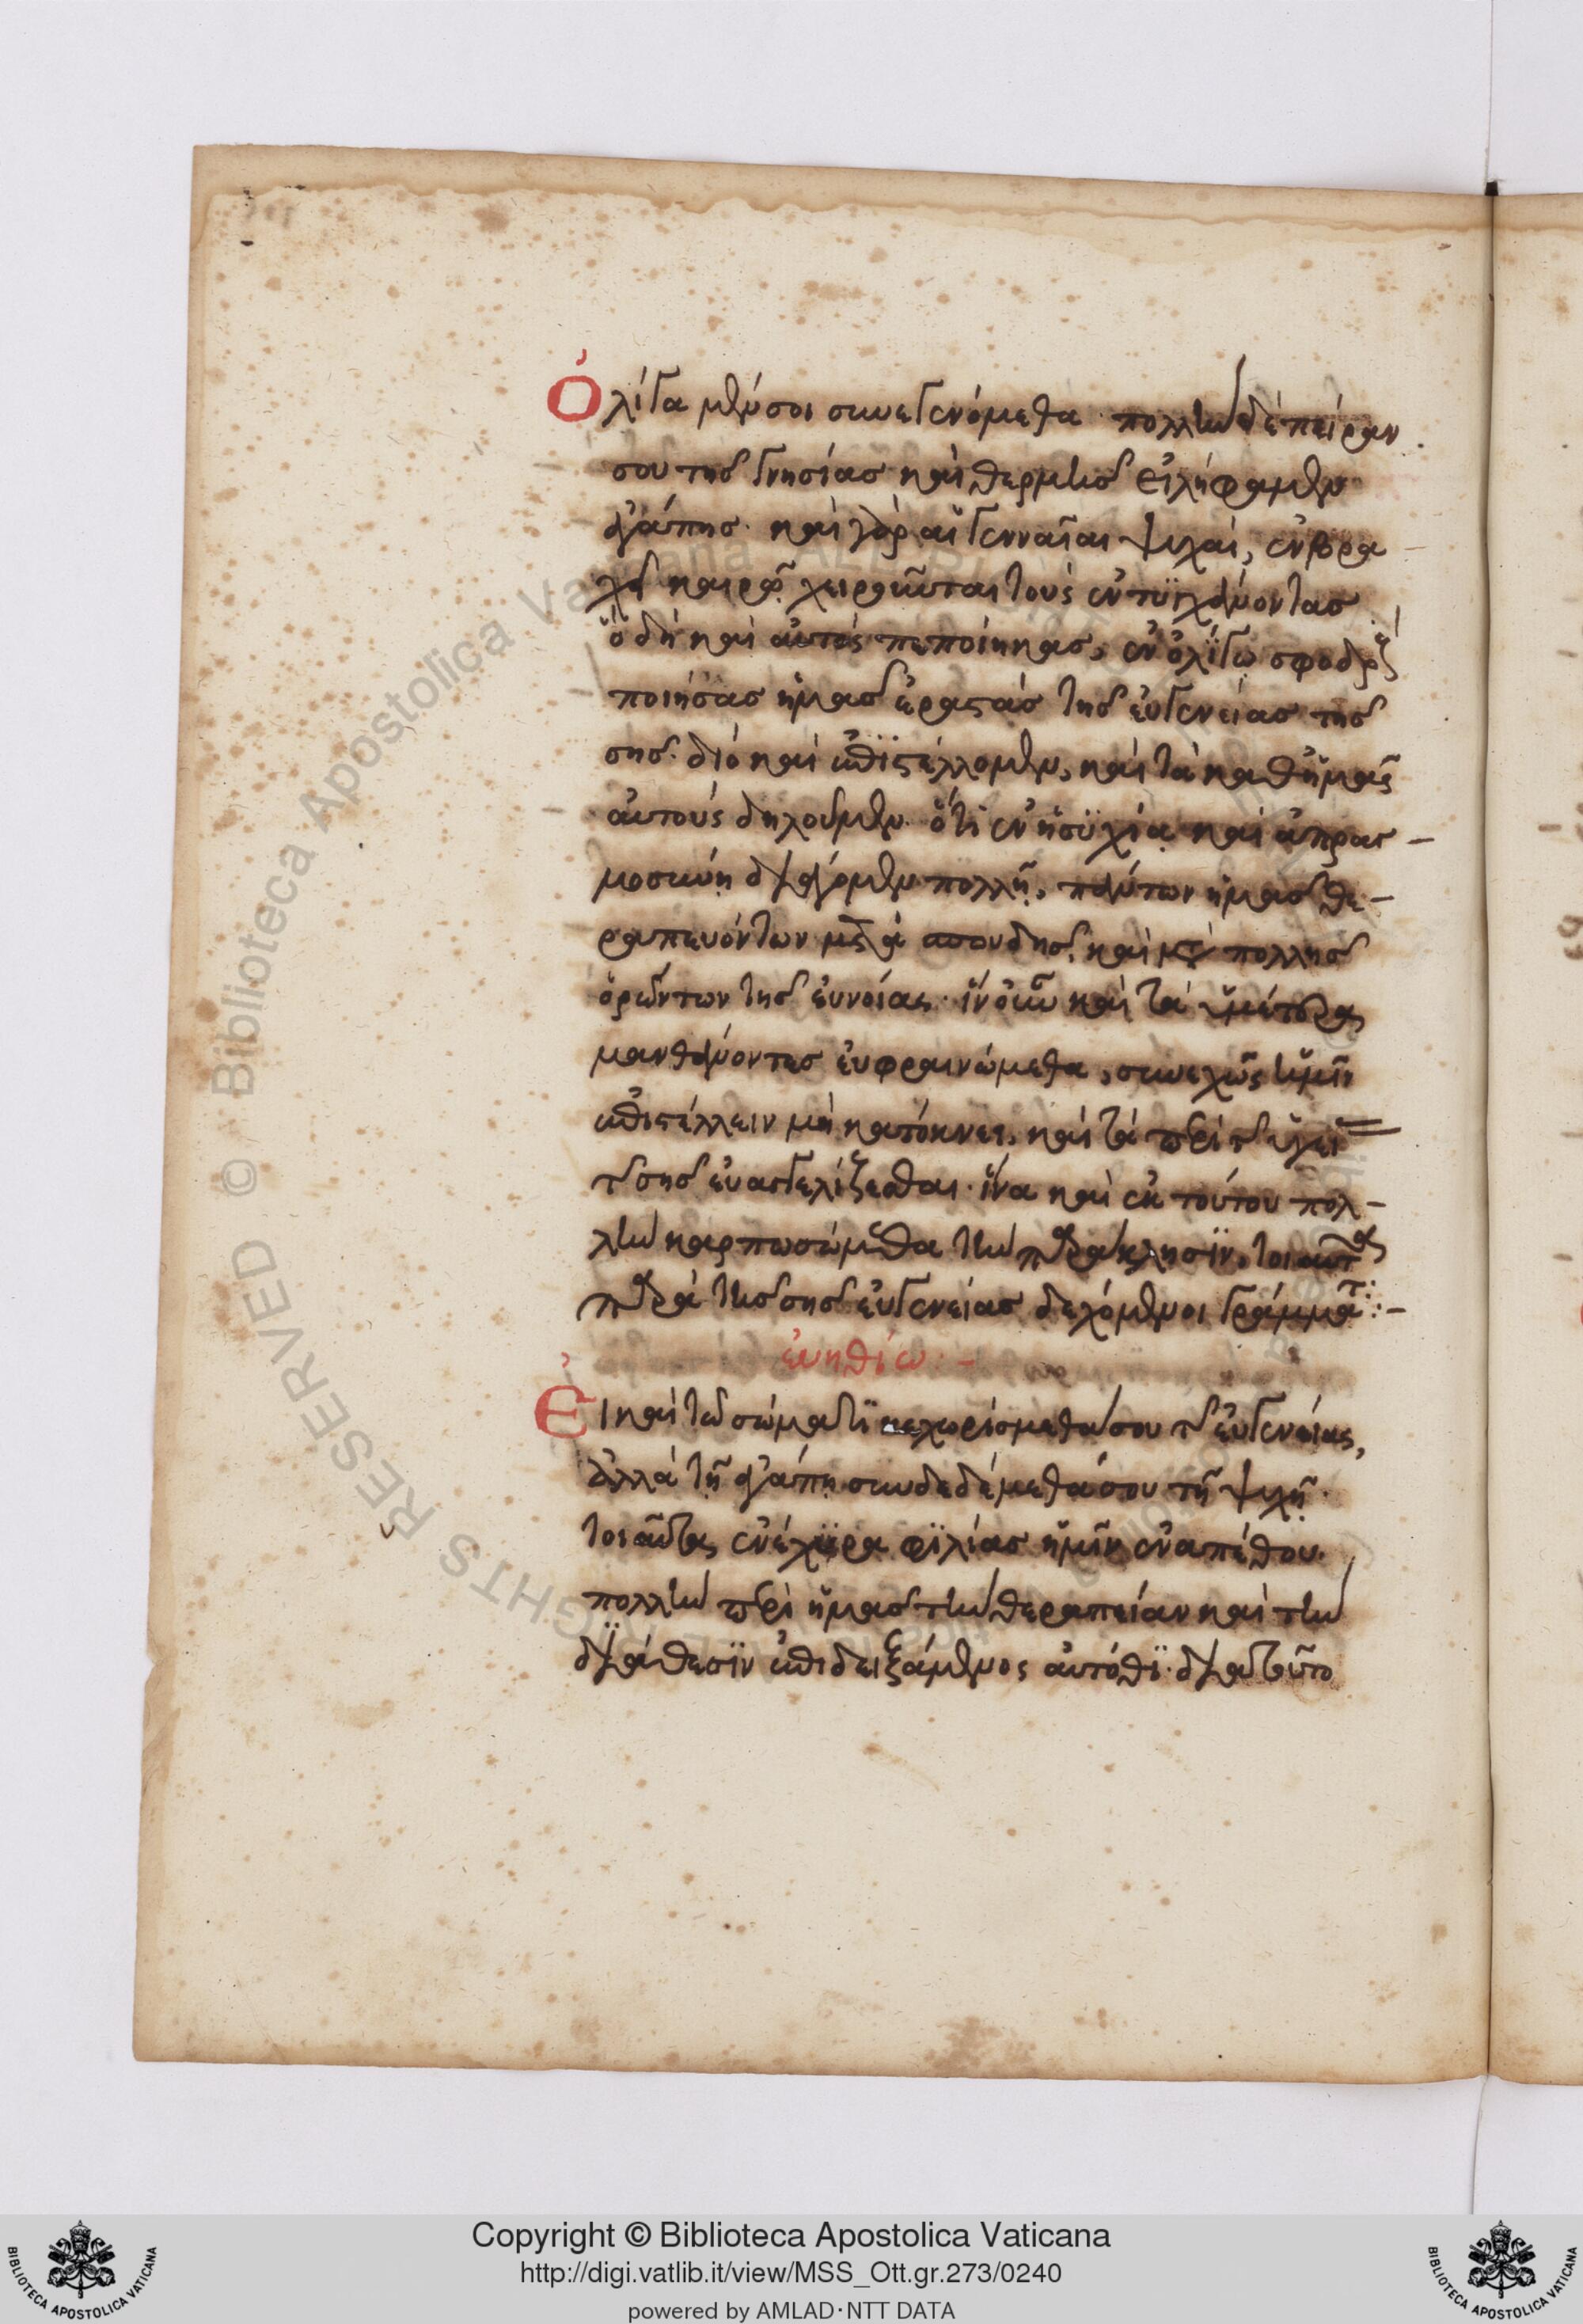 Ὀλίγα μὲν σοι συνεγενόμεθα· πολλὴν δὲ πεῖραν
σου τῆς γνησίας καὶ θερμῆς εἰλήφαμεν
ἀγάπης· καὶ γὰρ αἱ γενναῖαι ψυχαὶ, ἐν βρα
χεῖ καιρῷ χειροῦνται τοὺς ἐντυγχάνοντας
ὃ δὴ καὶ αὐτὸς πεποίηκας, ἐν ὀλίγῳ σφοδροὺς
ποιήσας ἡμᾶς ἐραστὰς τῆς εὐγενείας τῆς
σῆς· διὸ καὶ ἐπιστέλλομεν, καὶ τὰ καθ' ἡμᾶς
αὐτοὺς δηλοῦμεν· ὅτι ἐν ἡσυχίᾳ καὶ ἀπραγ-
μοσύνῃ διάγομεν πολλῇ, πάντων ἡμᾶς θε-
ραπευόντων μετὰ σπουδῆς, καὶ μετὰ πολλῆς
ὁρώντων τῆς εὐνοίας· ἵν' οὖν καὶ τὰ ὑμέτερα
μανθάνοντες εὐφραινώμεθα, συνεχῶς ἡμῖν
ἐπιστέλλειν μὴ κατόκνει, καὶ τὰ περὶ τῆς ὑγεί
τῆς σῆς εὐαγγελίζεσθαι· ἵνα καὶ ἐκ τούτου πολ-
λὴν καρπωσώμεθα τὴν παράκλησιν, τοιαῦτα
παρὰ τῆς σῆς εὐγενείας δεχόμενοι γράμματ:-
εὐηθίω:-
Εἰ καὶ τῷ σώματι κεχωρίσμεθα σου τῆς εὐγενείας,
ἀλλὰ τῇ ἀγάπῃ συνδεδέμεθά σου τῇ ψυχῇ·
τοιαῦτα ἐνέχυρα φιλίας ἡμῖν ἐναπέθου·
πολλὴν περὶ ἡμᾶς τὴν θεραπείαν καὶ τὴν
διάθεσιν ἐπιδειξάμενος αὐτόθι· διὰ τοῦτο
Copyright © Biblioteca Apostolica Vaticana
http://digi.vatlib.it/view/MSS_Ott.gr.273/0240
powered by AMLAD·NTT DATA